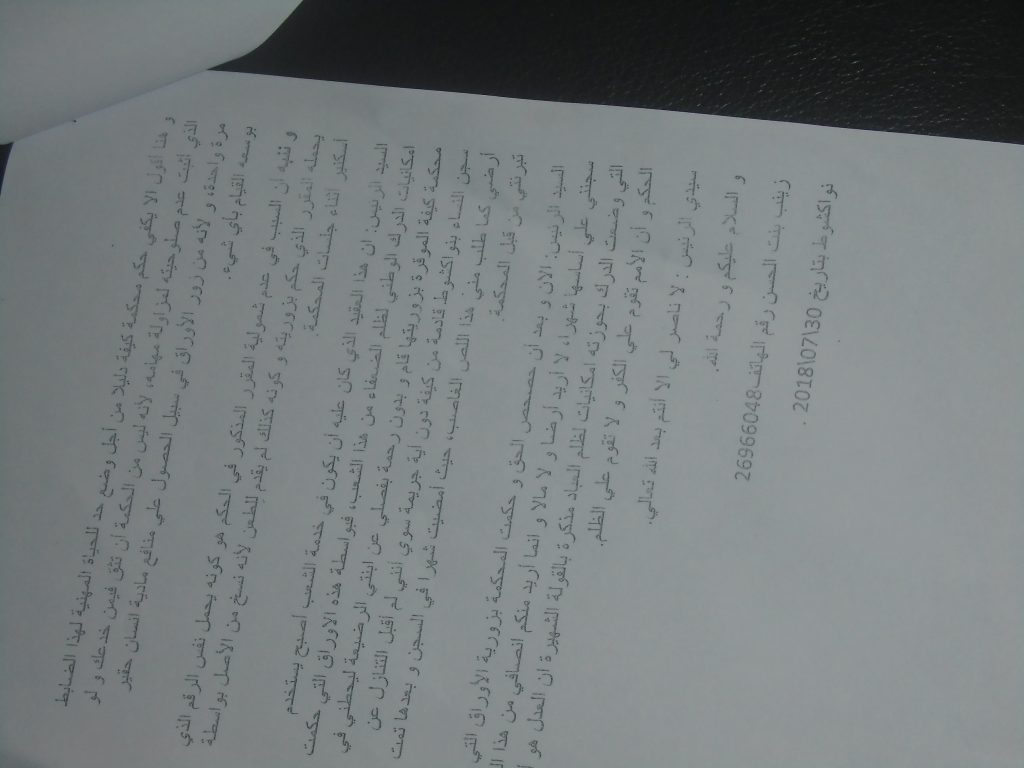 و هنا أقول ألا يكفي حكم محكمة كيفة دليلا من أجل وضع حد للحياة المهنية لهذا الضابط
الذي أثبت عدم صلوحيته لمزاولة مهامه، لأنه ليس من الحكمة أن تثق فيمن خدعك و لو
مرة واحدة، و لأنه من زور الأوراق في سبيل الحصول علي منافع مادية انسان حقير
بوسعه القيام بأي شيء.
و تنبه أن السبب في عدم شمولية المقرر المذكور في الحكم هو كونه يحمل نفس الرقم الذي
يحمله المقرر الذي حكم بزوريته و كونه كذلك لم يقدم للطعن لأنه نسخ من الأصل بواسطة
أسكنير أثناء جلسات المحكمة.
السيد الرئيس: ان هذا العقيد الذي كان عليه أن يكون في خدمة الشعب أصبح يستخدم
امكانيات الدرك الوطني لظلم الضعفاء من هذا الشعب، فبواسطة هذه الأوراق التي حكمت
محكمة كيفة الموقرة بزوريتها قام و بدون رحمة بفصلي عن ابنتي الرضيعة ليحطني في
سجن النساء بنواكشوط قادمة من كيفة دون أية جريمة سوي أنني لم أقبل التنازل عن
أرضي كما طلب مني هذا اللص الغاصب، حيث أمضيت شهرا في السجن و بعدها تمت
تبرئتي من قبل المحكمة.
السيد الرئيس: الآن و بعد أن حصحص الحق و حكمت المحكمة بزورية الأوراق التي
سجنني علي أساسها شهرا، لا أريد أرضا و لا مالا و انما أريد منكم انصافي من هذا
التي وضعت الدرك بحوزته امكانيات لظلم العباد مذكرة بالقولة الشهيرة ان العدل هو
الحكم و أن الأمم تقوم علي الكفر و لا تقوم علي الظلم.
سيدي الرئيس : لا ناصر لي الا أنتم بعد الله تعالي.
و السلام عليكم و رحمة الله.
زينب بنت الحسن رقم الهاتف26966048
نواكشوط بتاريخ 30\07\2018 .